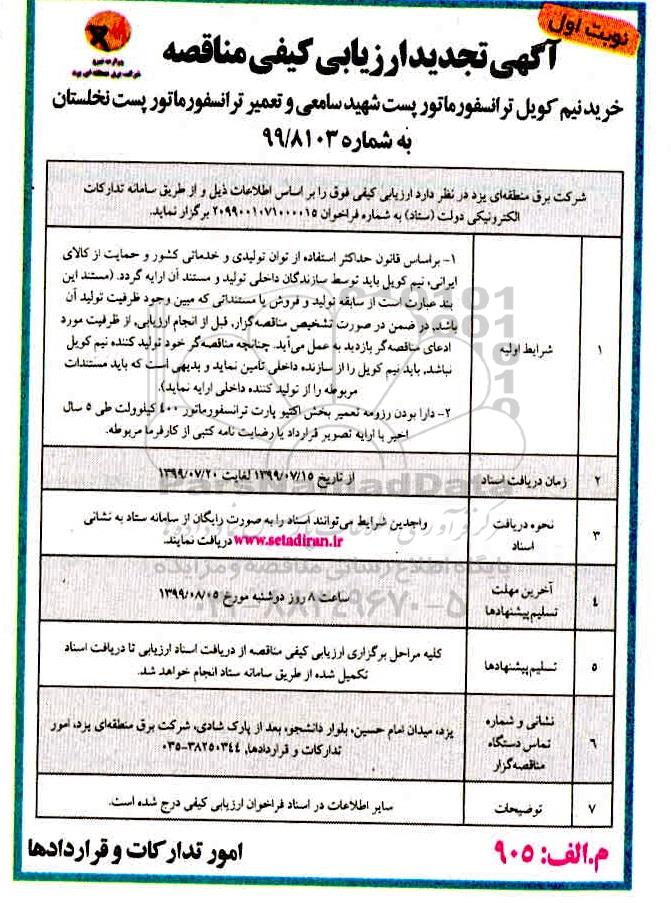 نوبت اول
آگهی تجدید ارزیابی کیفی مناقصه
خرید نیم کویل ترانسفورماتور پست شهید سامعی و تعمیر ترانسفورماتور پست نخلستان
به شماره ۹۹/۸۱۰۳
شرکت برق منطقه‌ای یزد در نظر دارد ارزیابی کیفی فوق را بر اساس اطلاعات ذیل و از طریق سامانه تدارکات
الکترونیکی دولت (ستاد) به شماره فراخوان ۲۰۹۹۰۰۱۰۷۱۰۰۰۰۱۵ برگزار نماید.
۱
شرایط اولیه
۱- براساس قانون حداکثر استفاده از توان تولیدی و خدماتی کشور و حمایت از کالای
ایرانی، نیم کویل باید توسط سازندگان داخلی تولید و مستند آن ارایه گردد. (مستند این
بند عبارت است از سابقه تولید و فروش یا مستنداتی که مبین وجود ظرفیت تولید آن
باشد. در ضمن در صورت تشخیص مناقصه‌گزار، قبل از انجام ارزیابی، از ظرفیت مورد
ادعای مناقصه‌گر بازدید به عمل می‌آید. چنانچه مناقصه‌گر خود تولید کننده نیم کویل
نباشد، باید نیم کویل را از سازنده داخلی تامین نماید و بدیهی است که باید مستندات
مربوطه را از تولید کننده داخلی ارایه نماید).
۲- دارا بودن رزومه تعمیر بخش اکتیو پارت ترانسفورماتور ۴۰۰ کیلوولت طی ۵ سال
اخیر با ارایه تصویر قرارداد یا رضایت نامه کتبی از کارفرما مربوطه.
۲
زمان دریافت اسناد
از تاریخ ۱۳۹۹/۰۷/۱۵ لغایت ۱۳۹۹/۰۷/۲۰
۳
نحوه دریافت
اسناد
واجدین شرایط می‌توانند اسناد را به صورت رایگان از سامانه ستاد به نشانی
www.setadiran.ir دریافت نمایند.
۴
آخرین مهلت
تسلیم پیشنهادها
ساعت ۸ روز دوشنبه مورخ ۱۳۹۹/۰۸/۰۵
۵
تسلیم پیشنهادها
کلیه مراحل برگزاری ارزیابی کیفی مناقصه از دریافت اسناد ارزیابی تا دریافت اسناد
تکمیل شده از طریق سامانه ستاد انجام خواهد شد.
۶
نشانی و شماره
تماس دستگاه
مناقصه‌گزار
یزد، میدان امام حسین، بلوار دانشجو، بعد از پارک شادی، شرکت برق منطقه‌ای یزد، امور
تدارکات و قراردادها، ۳۸۲۵۰۳۴۴-۰۳۵
۷
توضیحات
سایر اطلاعات در اسناد فراخوان ارزیابی کیفی درج شده است.
م.الف: ۹۰۵
امور تدارکات و قراردادها
ParsNamadData
پایگاه اطلاع رسانی مناقصه و مزایده
۰۲۱-۸۸۳۴۹۶۷۰-۵